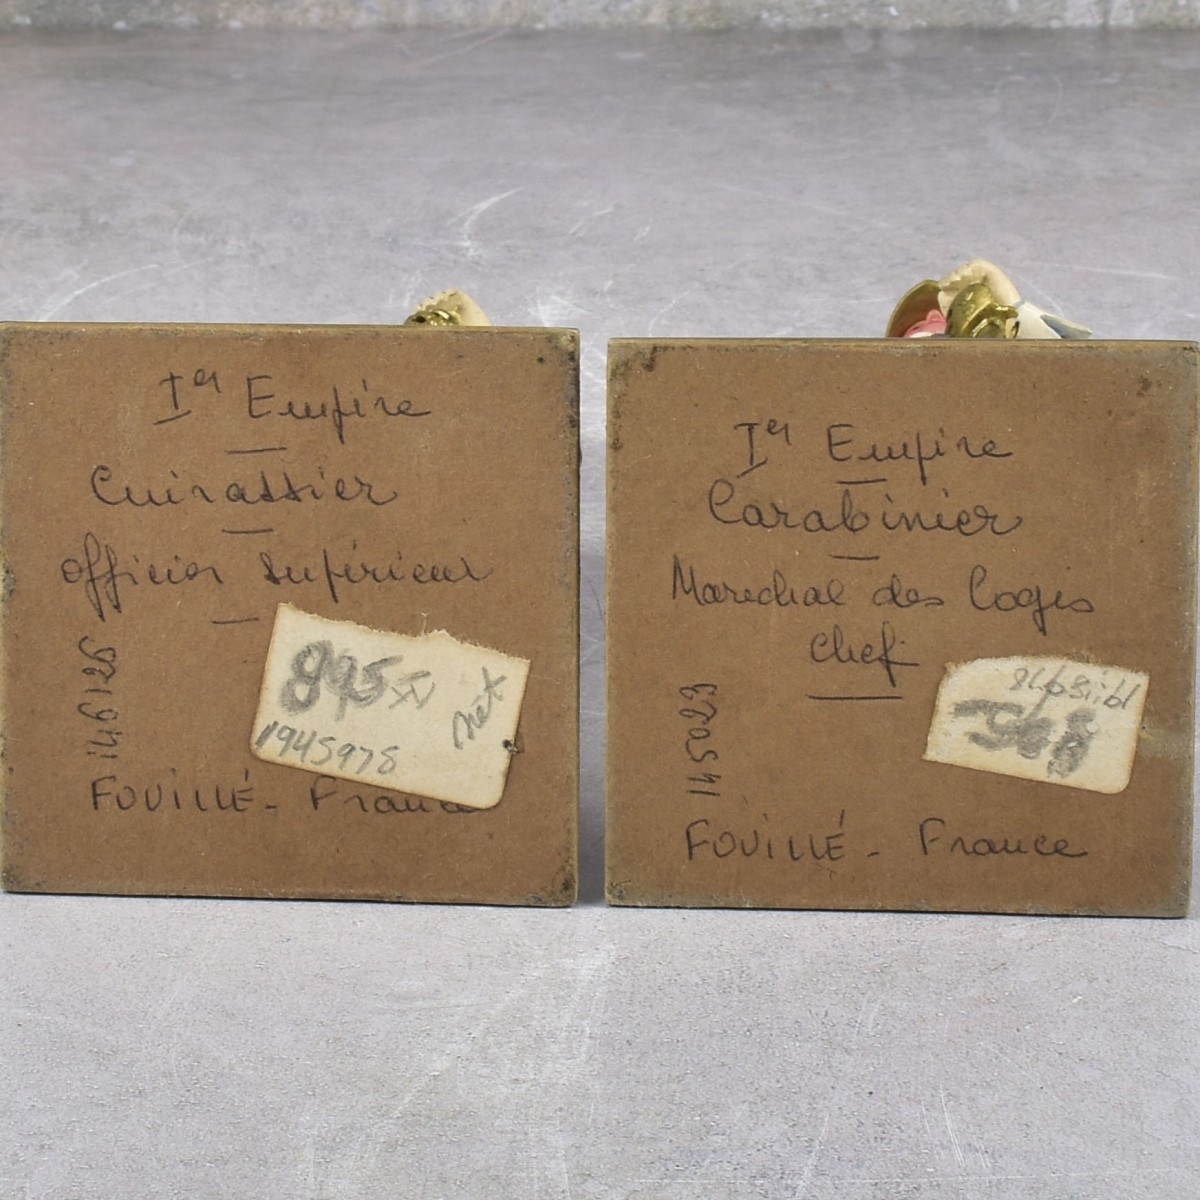 Ier Empire
Cuirassier
Officier Supérieur
146126
895
net
1945978
FOUILLÉ - France
Ier Empire
Carabinier
Marechal des Logis
Chef
145023
FOUILLÉ - France